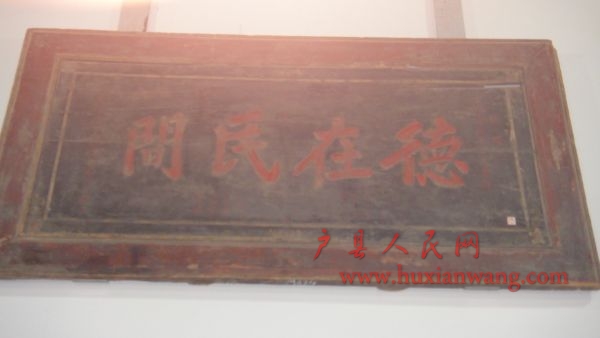 德在民間
户县人民网
www.huxianwang.com